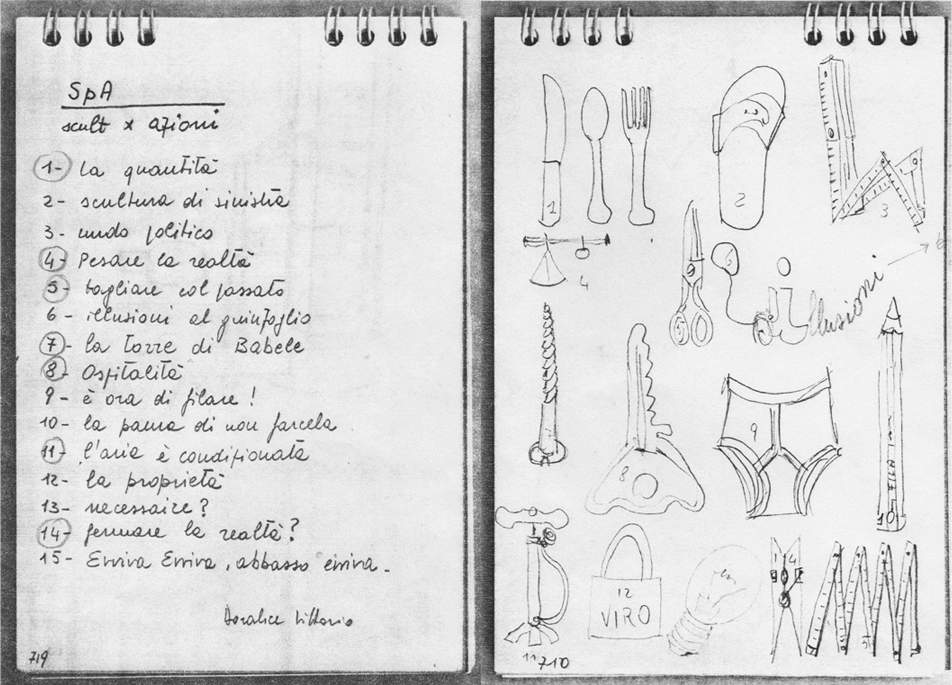 SpA
scult x azioni
1- la quantità
2- scultura di sinistra
3- nudo politico
4- Pesare la realtà
5- tagliare col passato
6- illusioni al guinzaglio
7- la Torre di Babele
8- Ospitalità
9- è ora di filare!
10- la paura di non farcela
11- l'aria è condizionata
12- la proprietà
13- necessaire?
14- fermare la realtà?
15- Evviva Evviva, abbasso evviva.
719
1
2
3
4
5
illusioni
8
9
10
12
VIRO
14
11
710